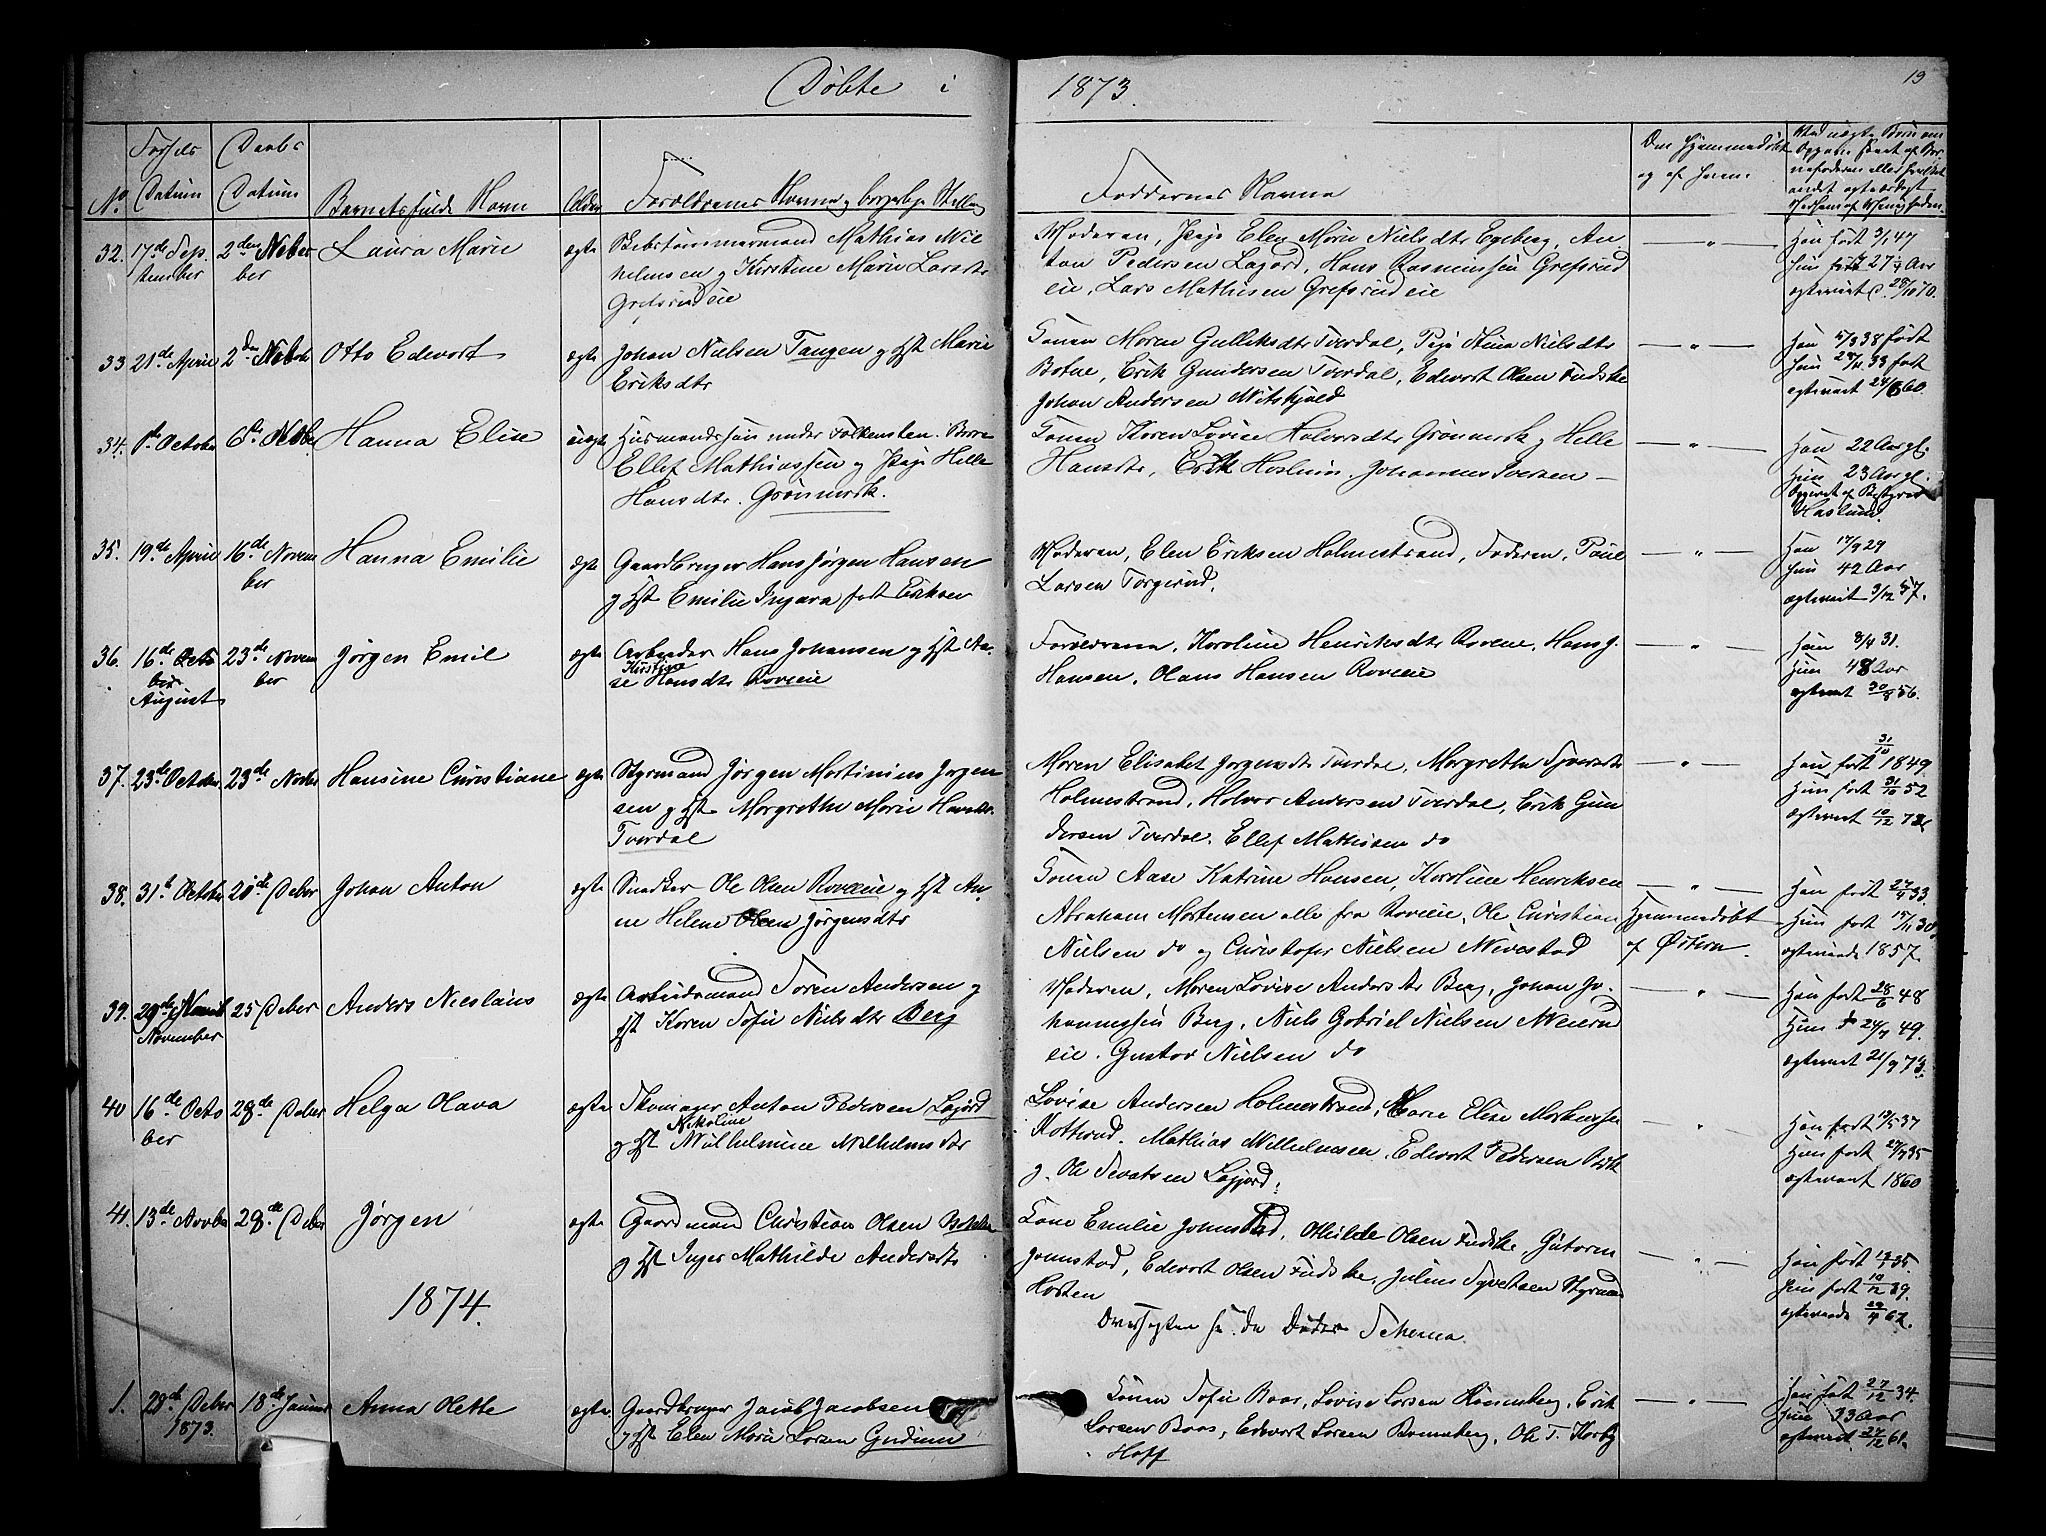 Døbte i 1873.
19
No
Fødsels Datum
Daabs Datum
Barnets fulde Navn
Alder
Forældrenes Navne og borgerlige Stilling
Faddernes Navne
Om Hjemmedøbt og af hvem
32. 17de September
2den November
Laura Marie
ægte
Skibstømmermand Mathias Wilhelmsen og Kirstine Marie Larsdtr
Grefsrudeie
Moderen, Pige Elen Marie Nielsdtr Egeberg, An-
ton Pedersen Lagørd, Hans Rasmussen Grefsrud
eie, Lars Mathisen Grefsrudeie
Han født 3/1 47
Hun født 27 1/4 Aar
ægteviet d. 28/10 70.
33 21de April
2den Novbr
Otto Edevort
ægte
Johan Nielsen Tangen og Hst Marie
Eriksdtr
Konen Maren Gulliksdtr Tverdal, Pige Stina Nielsdtr
Botne, Erik Gundersen Tverdal, Edevort Olsen Fudske
Johan Andersen Mitskjold
Han 5/3 38 født
Hun 28/11 33 født
ægteviet 24/6 60.
34. 1ste October
Hanna Elise
uægte
Husmandssøn under Falkensten. Borre
Ellef Mathiassen og Pige Helle
Hansdtr. Grønnersk.
Konen Karen Lovise Halvorsdtr Grønnersk og Helle
Hansdtr, Erik Haslum, Johannes Iversen
Han 22 Aar gl.
Hun 23 Aar gl.
Opgivet af Bestyrer
Haslum.
35. 19de April
16de November
Hanna Emilie
ægte
Gaardbruger Hans Jørgen Hansen
og Hst Emilie Ingara født Eriksen
Moderen, Elen Eriksen Holmestrand, Faderen, Paul
Larsen Torgerud.
Han 17/9 29
Hun 42 Aar
ægteviet 3/12 57.
36. 16de August
23de November
Jørgen Emil
ægte
Arbeider Hans Johansen og Hst An-
ne Kirstine Hansdtr Roveeie
Forældrene, Karoline Henriksdtr Roveeie, Hans J.
Hansen, Olaus Hansen Roveeie
Han 8/4 31.
Hun 48 Aar
ægteviet 30/8 56.
37. 23de October
23de Novbr
Hansine Christiane
ægte
Styrmand Jørgen Martinius Jørgen
sen og Hst Margrethe Marie Hansdtr.
Tverdal
Maren Elisabet Jørgensdtr Tverdal, Margrethe Syversdtr
Holmestrand, Halvor Andersen Tverdal, Erik Gun
dersen Tverdal, Ellef Mathisen do
Han født 31/10 1849.
Hun født 31/10 52
ægteviet 10/12 72
38. 31te October
20de Deber
Johan Anton
ægte
Snedker Ole Olsen Roveeie og Hst An-
ne Helene Jørgensdtr
Konen Aase Katrine Hansen, Karoline Henriksen
Abraham Mortensen alle fra Roveeie, Ole Christian
Nielsen do og Christofer Nielsen Wivestad
Hjemmedøbt
af Østern.
Han født 27/4 33.
Hun født 15/11 30.
ægteviede 1857.
39. 29de November
25 Deber
Anders Nicolaus
ægte
Arbeidsmand Søren Andersen og
Hst Karen Sofie Nielsdtr Berg
Moderen, Maren Lovise Andersdtr Berg, Johan Jo-
hannessen Berg, Niels Gabriel Nielsen Weiern
eie. Gustav Nielsen do
Han født 28/6 48
Hun do 24/7 49.
ægteviet 21/9 73.
40 16de October
28de Deber
Helga Olava
ægte
Skomager Anton Pedersen Lagørd
og Hst Nikoline Wilhelmine Wilhelmsdtr
Lovise Andersen Holmestrand, Marie Elise Markussen
Kotterud. Mathias Wilhelmsen, Edevort Pedersen
g. Ole Sevatsen Lagjørd.
Han født 19/5 37
Hun født 27/7 35
ægteviet 1860
41. 13de Novbr
28de Deber
Jørgen
ægte
Gaardmand Christian Olsen
og Hst Inger Mathilde Andersdtr
Kone Emilie Jonnstad, Othilde Olsen Fudske, Gutorm
Jonnstad, Edevort Olsen Fudske, Julius Syvertsen Styrmand
Horten
ægteviede 29/4 62.
1874.
Oversigten se de Dødes Schema.
1. 28de Deber 1873.
18de Januar
Anna Olette
ægte
Gaardbruger Jacob Jacobsen
og Hst Elen Marie Larsen Gudum
Konen Sofie Baas, Lovise Larsen Ronneberg, Erik
Larsen Baas, Edevort Larsen Ronneberg, Ole T. Korby
Hoff
Han født 27/12 34.
Hun 33 Aar
ægteviet 27/12 61.